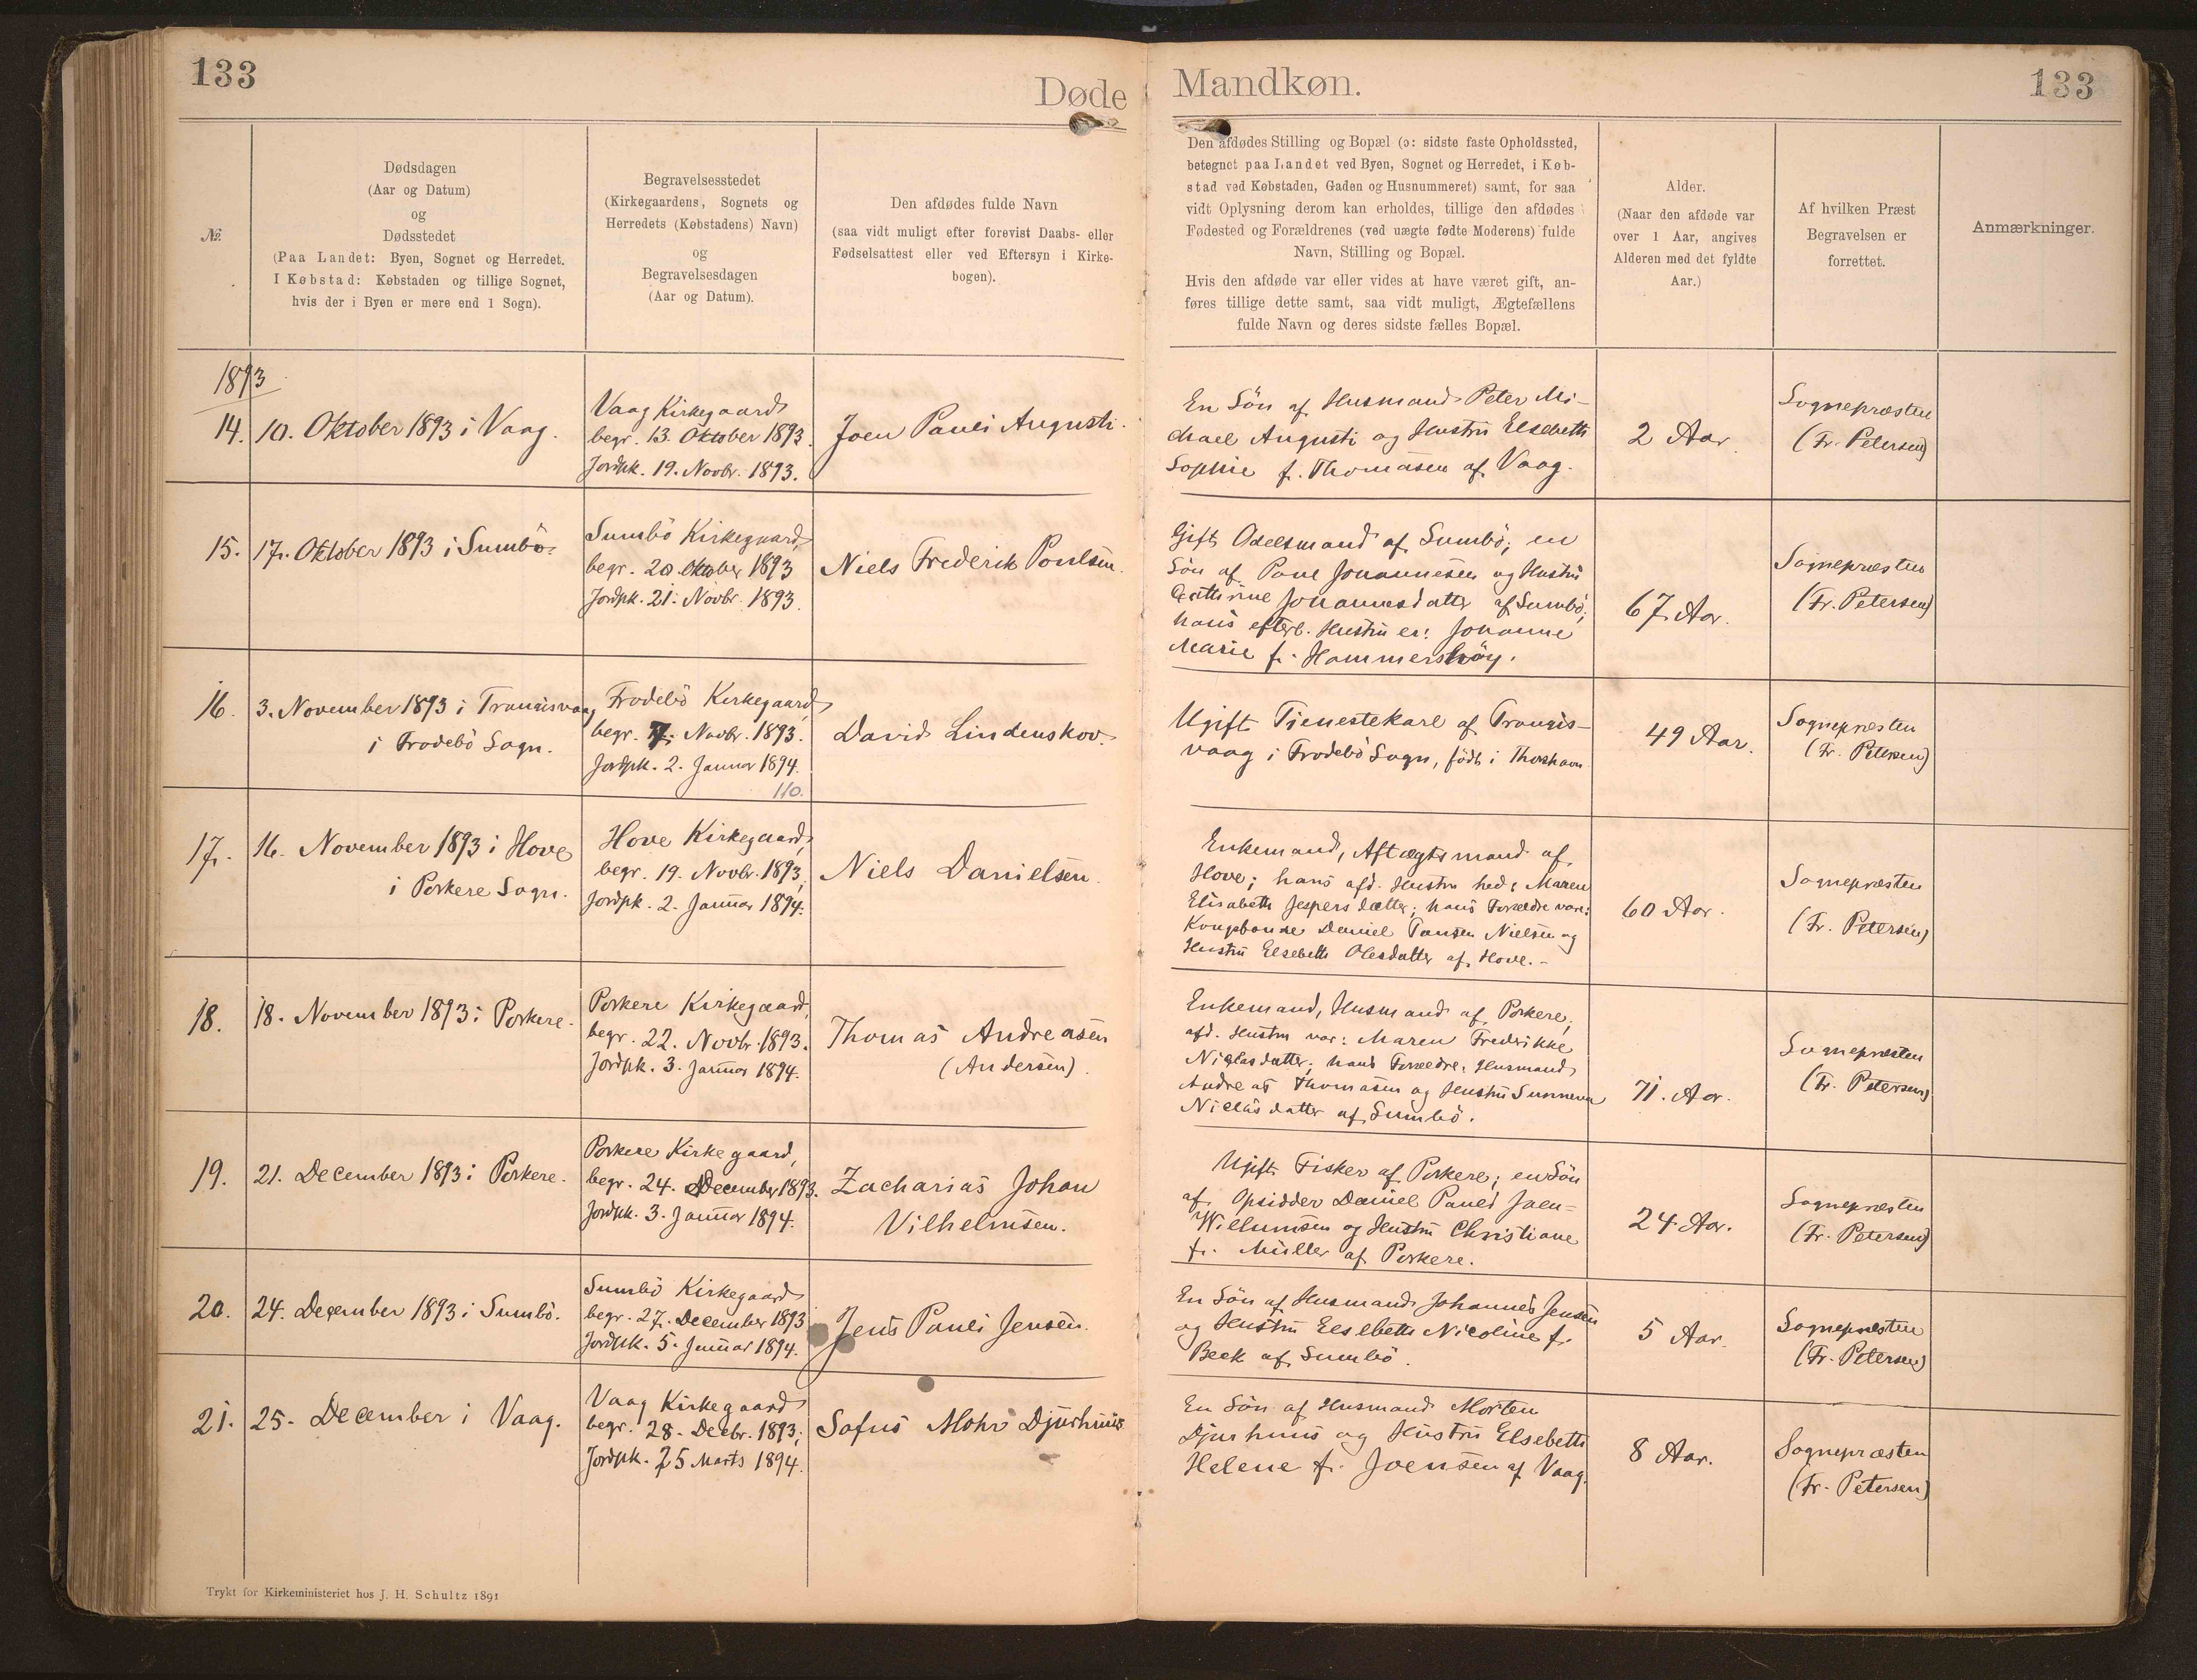 133
Døde
Mandkøn.
133
№
Dødsdagen
(Aar og Datum)
og
Dødsstedet
(Paa Landet: Byen, Sognet og Herredet.
I Købstad: Købstaden og tillige Sognet,
hvis der i Byen er mere end 1 Sogn).
Begravelsesstedet
(Kirkegaardens, Sognets og
Herredets (Købstadens) Navn)
og
Begravelsesdagen
(Aar og Datum).
Den afdødes fulde Navn
(saa vidt muligt efter forevist Daabs- eller
Fødselsattest eller ved Eftersyn i Kirke-
bogen).
Den afdødes Stilling og Bopæl (ɔ: sidste faste Opholdssted,
betegnet paa Landet ved Byen, Sognet og Herredet, i Køb-
stad ved Købstaden, Gaden og Husnummeret) samt, for saa
vidt Oplysning derom kan erholdes, tillige den afdødes
Fødested og Forældrenes (ved uægte fødte Moderens) fulde
Navn, Stilling og Bopæl.
Hvis den afdøde var eller vides at have været gift, an-
føres tillige dette samt, saa vidt muligt, Ægtefællens
fulde Navn og deres sidste fælles Bopæl.
Alder.
(Naar den afdøde var
over 1 Aar, angives
Alderen med det fyldte
Aar.)
Af hvilken Præst
Begravelsen er
forrettet.
Anmærkninger.
1893
14.
10. Oktober 1893 i Vaag.
Vaag Kirkegaard
begr. 13. Oktober 1893.
Jordpk. 19. Novbr. 1893.
Joen Pauli Augusti.
En Søn af Husmand Peter Mi-
chael Augusti og Hustru Elsebeth
Sophie f. Thomasen af Vaag.
2 Aar.
Sognepræsten
(Fr. Petersen)
15.
17. Oktober 1893 i Sumbö.
Sumbö Kirkegaard,
begr. 20. Oktober 1893
Jordpk. 21. Novbr. 1893.
Niels Frederik Poulsen.
Gift Odelsmand af Sumbö; en
Søn af Poul Johannesen og Hustru
Cathrine Johannesdatter af Sumbö;
hans efterl. Hustru er: Johanne
Marie f. Hammershöy.
67 Aar.
Sognepræsten
(Fr. Petersen)
16.
3. November 1893 i Trangisvaag
i Frodebö Sogn.
Frodebö Kirkegaard,
begr. 7. Novbr. 1893.
Jordpk. 2. Januar 1894.
110.
David Lindenskov.
Ugift Tjenestekarl af Trangis-
vaag i Frodebö Sogn, født i Thorshavn
49 Aar.
Sognepræsten
(Fr. Petersen)
17.
16. November 1893 i Hove
i Porkere Sogn.
Hove Kirkegaard,
begr. 19. Novbr. 1893,
Jordpk. 2. Januar 1894.
Niels Danielsen.
Enkemand, Aftægtsmand af
Hove; hans afd. Hustru hed: Maren
Elisabeth Jespersdatter; hans Forældre vare:
Kongsbonde Daniel Nielsen og
Hustru Elsebeth Olesdatter af Hove.-
60 Aar.
Sognepræsten
(Fr. Petersen)
18.
18. November 1893 i Porkere.
Porkere Kirkegaard,
begr. 22. Novbr. 1893.
Jordpk. 3. Januar 1894.
Thomas Andreasen
(Andersen).
Enkemand, Husmand af Porkere;
afd. Hustru var: Maren Frederikke
Niclasdatter; hans Forældre: Husmand
Andreas Thomasen og Hustru Sunneva
Niclasdatter af Sumbö.
71. Aar.
Sognepræsten
(Fr. Petersen)
19.
21. December 1893 i Porkere.
Porkere Kirkegaard,
begr. 24. December 1893.
Jordpk. 3. Januar 1894.
Zacharias Johan
Vilhelmsen.
Ugift Fisker af Porkere; en Søn
af Opsidder Daniel Pauli Joen-
Willumsen og Hustru Christiane
f. Müller af Porkere.
24 Aar.
Sognepræsten
(Fr. Petersen)
20.
24. December 1893 i Sumbö.
Sumbö Kirkegaard
begr. 27. December 1893
Jordpk. 5. Januar 1894.
Jens Pauli Jensen.
En Søn af Husmand Johannes Jensen
og Hustru Elsebeth Nicoline f.
Beck af Sumbö.
5 Aar.
Sognepræsten
(Fr. Petersen)
21.
25. December i Vaag.
Vaag Kirkegaard
begr. 28. Decbr. 1893;
Jordpk. 25 Marts 1894.
Sofus Mohr Djurhuus
En Søn af Husmand Morten
Djurhuus og Hustru Elsebeth
Helene f. Joensen af Vaag.
8 Aar.
Sognepræsten
(Fr. Petersen)
Trykt for Kirkeministeriet hos J. H. Schultz 1891